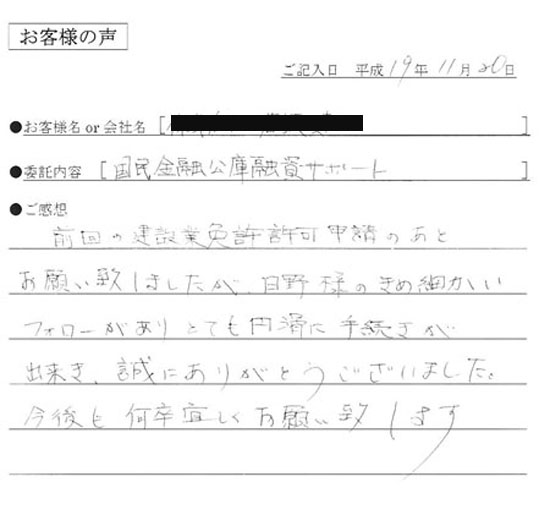 お客様の声
ご記入日 平成19年11月20日
●お客様名 or 会社名 [ ]
●委託内容 [国民金融公庫融資サポート ]
●ご感想
前回の建設業免許許可申請のあと
お願い致しましたが、日野様のきめ細かい
フォローがありとても円滑に手続きが
出来き、誠にありがとうございました。
今後も何卒宜しくお願い致します